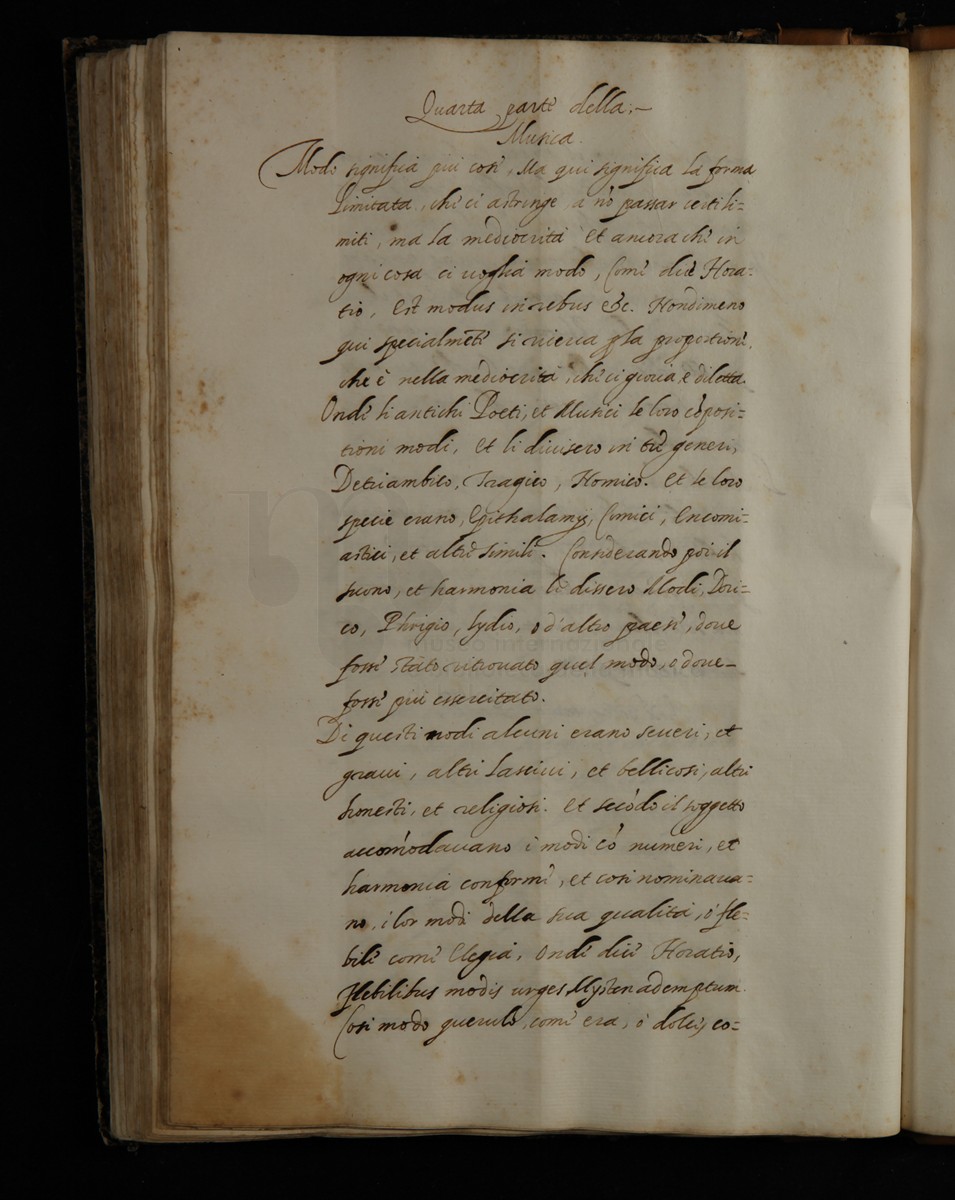 Quarta parte della:~
Musica.
Modo significa piu cose, Ma qui significa la forma
limitata, che ci astringe à nõ passar certi li=
miti, ma la mediocrità Et ancora che in
ogni cosa ci voglia modo, Come dice Hora=
tio, Est modus in rebus &c. Nondimeno
qui specialmẽte si riceva p la proportione,
che è nella mediocrità, che ci giova, e diletta.
Onde li antichi Poeti, et Musici le loro cõposi=
tioni modi, Et li divisero in tre generi,
Detriambico, Tragico, Nomico. Et le loro
specie erano, Epithalamij, Comici, Encomi=
astici, et altre simili. Considerando poi il
suono, et harmonia li dissero Modi, Dori=
co, Phrigio, Lydio, o d'altro paese, dove
fosse stato ritrovato quel modo, o dove
fosse piu essercitato.
Di questi modi alcuni erano severi, et
gravi, altri lascivi, et bellicosi, altri
honesti, et religiosi. Et secõdo il soggetto
accomodavano i modi cõ numeri, et
harmonia conforme, et cosi nominava=
no, i lor modi della sua qualità, ò fle=
bile come Elegia, Onde dice Horatio,
flebilibus modis urges Mysten ademptum.
Cosi modo querulo, come era, ò dolce, co=